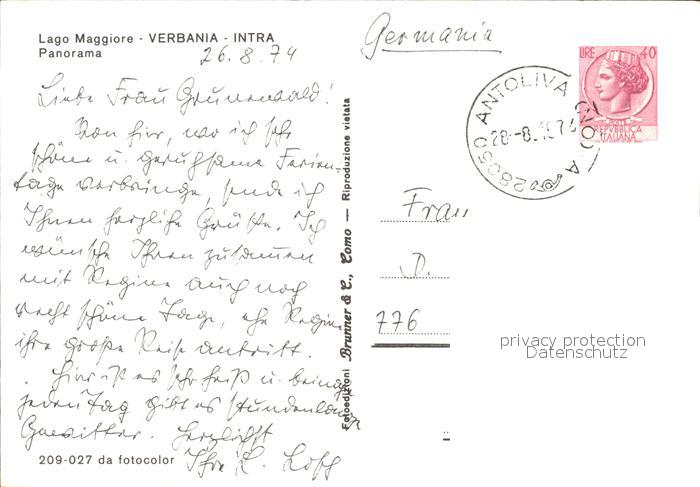 Lago Maggiore - VERBANIA - INTRA
Panorama
26.8.74
Liebe Frau Grunewald!
Von hier, wo ich sehr
schöne u. geruhsame Ferien-
tage verbringe, sende ich
Ihnen herzliche Grüße. Ich
wünsche Ihnen zusammen
mit Regine auch noch
recht schöne Tage, ehe Regine
ihre große Reise antritt.
Hier ist es sehr heiß u. beinahe
jeden Tag gibt es stundenlange
Gewitter. Herzlichst
Ihre L.
209-027 da fotocolor
Fotoedizioni Brunner & C., Como — Riproduzione vietata
Germania
LIRE 40
POSTE
REPVBBLICA
ITALIANA
28050 ANTOLIVA
28.-8.
Frau
D.
776
privacy protection
Datenschutz